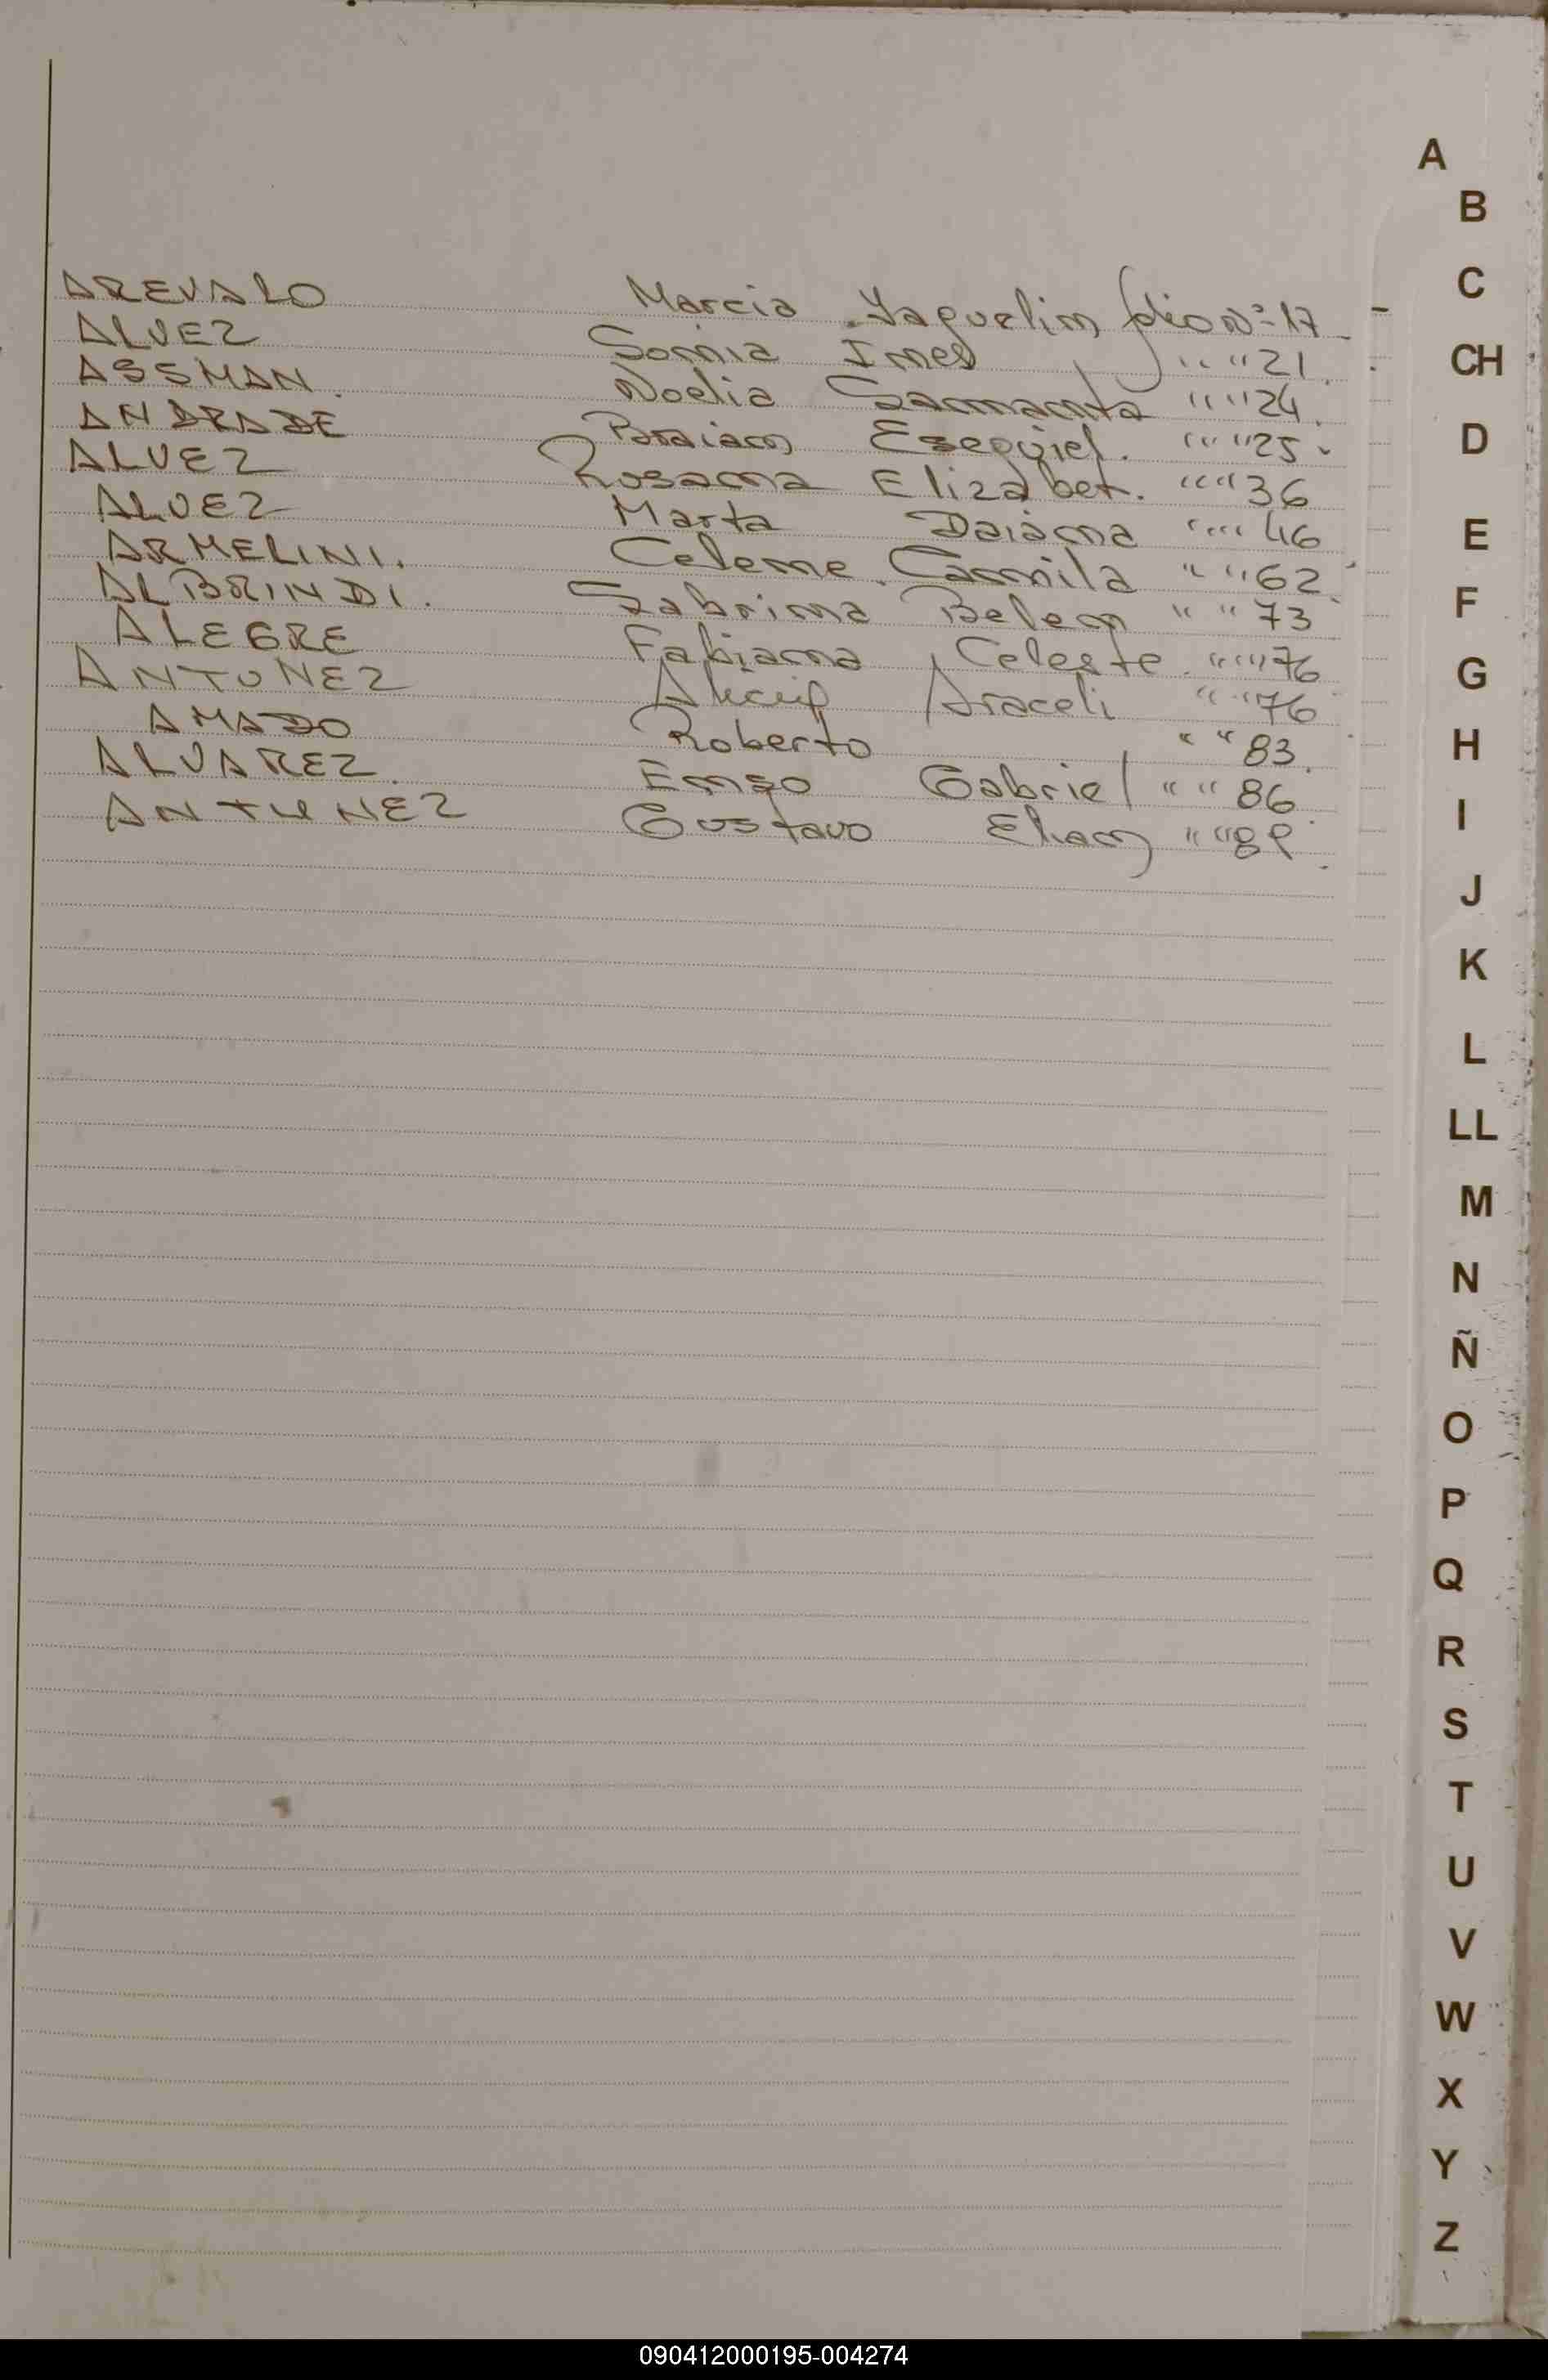 AREVALO Marcia Yaquelin folio Nº 17
ALVEZ Sonia Ines " " 21
ASSMAN. Noelia Samanta " " 24
ANDRADE Braian Esequiel. " " 25
ALVEZ Rosana Elizabet. " " 36
ALVEZ Marta Daiana " " 46
ARMELINI. Celene Camila " " 62
ALBRINDI. Sabrina Belen " " 73
ALEGRE Fabiana Celeste. " " 76
ANTUNEZ Araceli " " 76
AMADO Roberto " " 83.
ALVAREZ. Enzo Gabriel " " 86
ANTUNEZ Gustavo " "
A
B
C
CH
D
E
F
G
H
I
J
K
L
LL
M
N
Ñ
O
P
Q
R
S
T
U
V
W
X
Y
Z
090412000195-004274